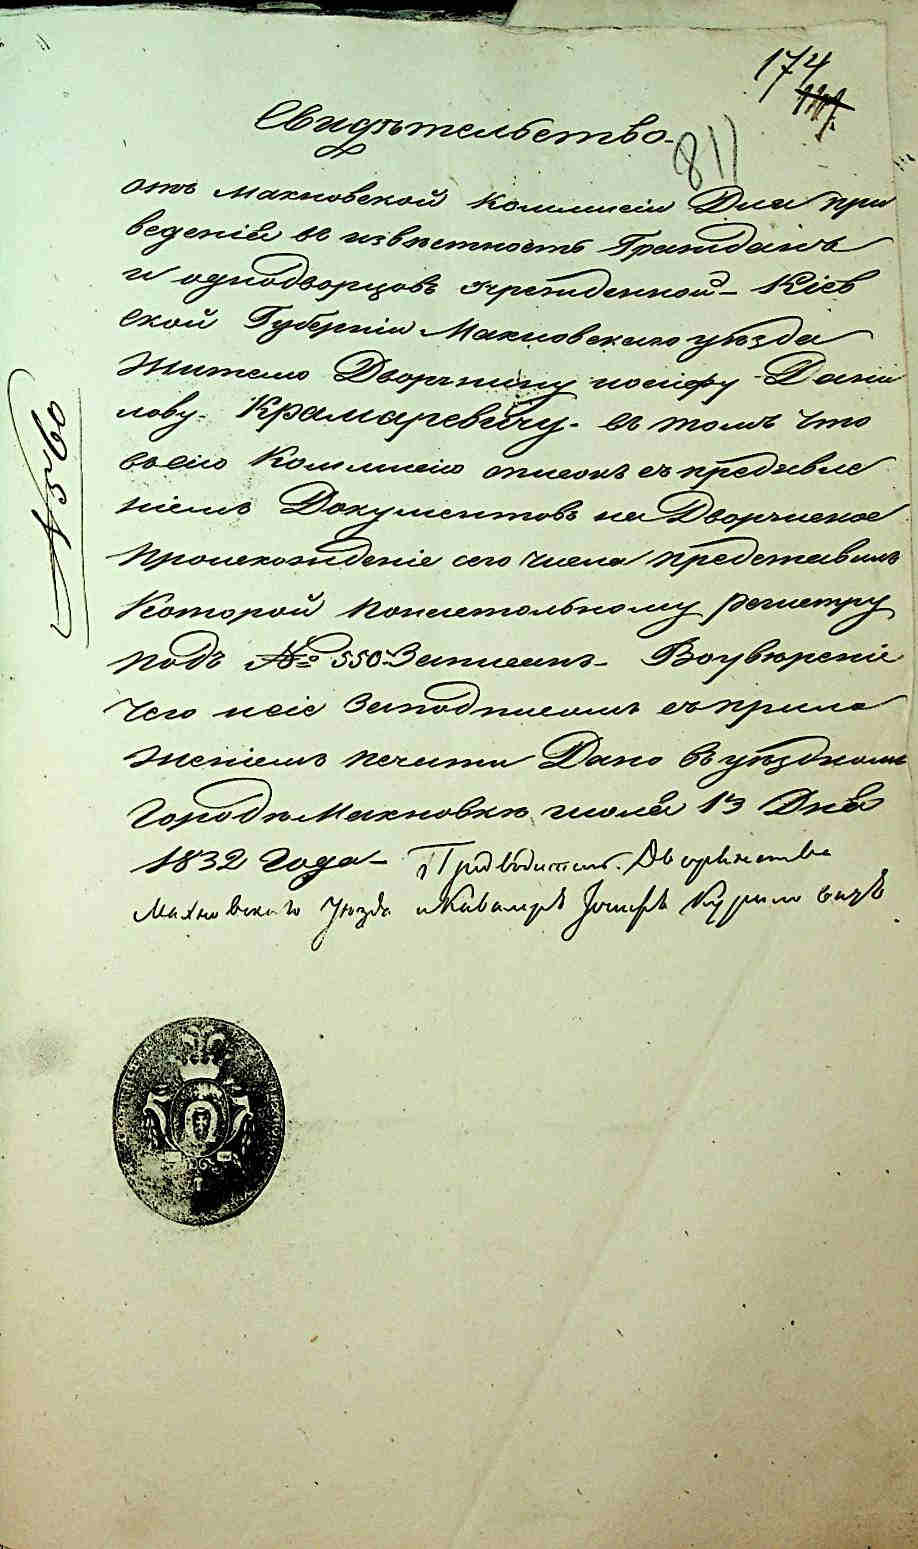 174
811
Свидѣтельство
отъ Махновской Коммисіи Для при
веденія въ извѣстность Гражданъ
и однодворцовъ учрежденной Кіев
ской Губерніи Махновскаго уѣзда
Жителю Дворянину иосифу Дани
лову Крамаревичу въ томъ что
въ сію Коммисію списокъ съ предъявле
ніемъ Документовъ на Дворянское
происхожденіе сего числа представилъ
Которой понастольному регистру
подъ № 550 Записанъ Воувѣреніе
чего и сіе Заподписомъ съ прило
женіемъ печати Дано въ уѣздномъ
городѣ Махновкѣ июля 13 Дня
1832 Года Предводитель Дворянства
Махновскаго Уѣзда и Кавалеръ Іосифъ
№ 560